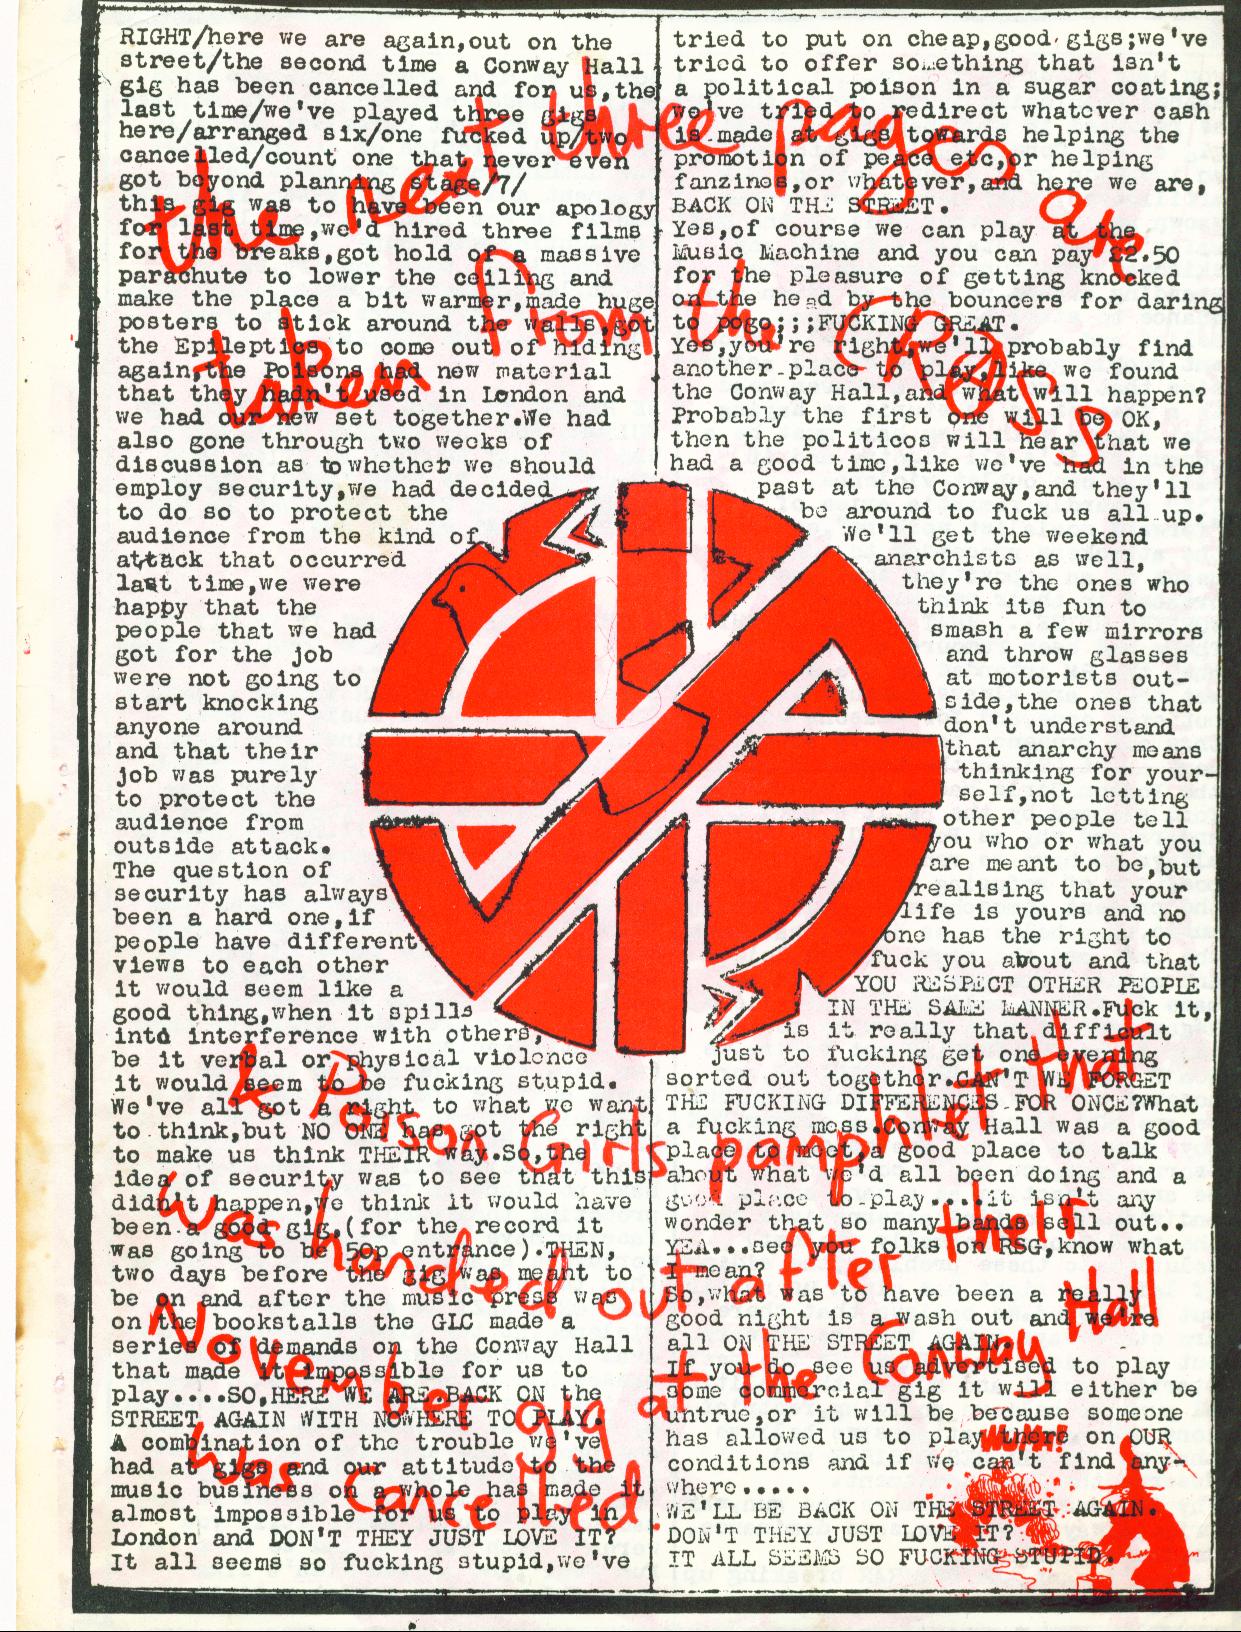 RIGHT/here we are again,out on the
street/the second time a Conway Hall
gig has been cancelled and for us,the
last time/we've played three gigs
here/arranged six/one fucked up/two
cancelled/count one that never even
got beyond planning stage/7/
this gig was to have been our apology
for last time,we'd hired three films
for the breaks,got hold of a massive
parachute to lower the ceiling and
make the place a bit warmer,made huge
posters to stick around the walls,got
the Epileptics to come out of hiding
again the Poisons had new material
that they hadn't used in London and
we had our new set together.We had
also gone through two weeks of
discussion as to whether we should
employ security,we had decided
to do so to protect the
audience from the kind of
attack that occurred
last time,we were
happy that the
people that we had
got for the job
were not going to
start knocking
anyone around
and that their
job was purely
to protect the
audience from
outside attack.
The question of
security has always
been a hard one,if
people have different
views to each other
it would seem like a
good thing,when it spills
into interference with others,
be it verbal or physical violence
it would seem to be fucking stupid.
We've all got a right to what we want
to think,but NO ONE has got the right
to make us think THEIR way.So,the
idea of security was to see that this
didn't happen,we think it would have
been a good gig,(for the record it
was going to be 50p entrance).THEN,
two days before the gig was meant to
be on and after the music press was
on the bookstalls the GLC made a
series of demands on the Conway Hall
that made it impossible for us to
play....SO,HERE WE ARE.BACK ON the
STREET AGAIN WITH NOWHERE TO PLAY.
A combination of the trouble we've
had at gigs and our attitude to the
music business on a whole has made it
almost impossible for us to play in
London and DON'T THEY JUST LOVE IT?
It all seems so fucking stupid,we've
tried to put on cheap,good gigs;we've
tried to offer something that isn't
a political poison in a sugar coating;
we've tried to redirect whatever cash
is made at gigs towards helping the
promotion of peace etc,or helping
fanzines,or whatever,and here we are,
BACK ON THE STREET.
Yes,of course we can play at the
Music Machine and you can pay £2.50
for the pleasure of getting knocked
on the head by the bouncers for daring
to pogo;;;FUCKING GREAT.
Yes,you're right,we'll probably find
another place to play,like we found
the Conway Hall,and what will happen?
Probably the first one will be OK,
then the politicos will hear that we
had a good time,like we've had in the
past at the Conway,and they'll
be around to fuck us all up.
We'll get the weekend
anarchists as well,
they're the ones who
think its fun to
smash a few mirrors
and throw glasses
at motorists out-
side,the ones that
don't understand
that anarchy means
thinking for your-
self,not letting
other people tell
you who or what you
are meant to be,but
realising that your
life is yours and no
one has the right to
fuck you about and that
YOU RESPECT OTHER PEOPLE
IN THE SAME MANNER.Fuck it,
is it really that difficult
just to fucking get one evening
sorted out together.CAN'T WE FORGET
THE FUCKING DIFFERENCES FOR ONCE?What
a fucking mess.Conway Hall was a good
place to meet,a good place to talk
about what we'd all been doing and a
good place to play....it isn't any
wonder that so many bands sell out..
YEA...see you folks on RSG,know what
I mean?
So,what was to have been a really
good night is a wash out and we're
all ON THE STREET AGAIN.
If you do see us advertised to play
some commercial gig it will either be
untrue,or it will be because someone
has allowed us to play there on OUR
conditions and if we can't find any-
where.....
WE'LL BE BACK ON THE STREET AGAIN.
DON'T THEY JUST LOVE IT?
IT ALL SEEMS SO FUCKING STUPID.
the next three pages are
taken from the CRASS
& Poison Girls pamphlet that
was handed out after their
November gig at the Conway Hall
was cancelled.